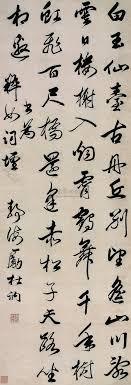 白玉仙臺古丹丘別望遙山川亂
雲日樓榭入煙霄鶴舞千年樹
虹飛百尺橋還逢赤松子天路坐
相邀
書為
粹如詞壇
靜海勵杜訥